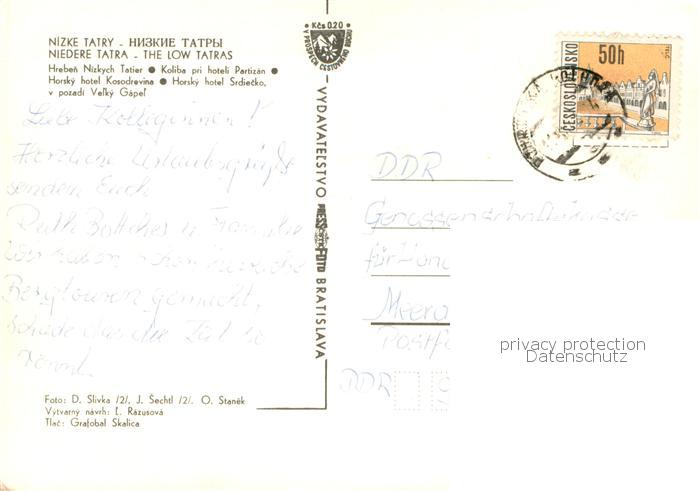 NÍZKE TATRY - НИЗКИЕ ТАТРЫ
NIEDERE TATRA - THE LOW TATRAS
Hrebeň Nízkych Tatier ● Koliba pri hoteli Partizán ●
Horský hotel Kosodrevina ● Horský hotel Srdiečko,
v pozadí Veľký Gápeľ
Liebe Kolleginnen!
Herzliche Urlaubsgrüße
senden Euch
Ruth Böttcher u. Familie
Wir haben schon
Bergtouren gemacht,
Schade das die Zeit so
rennt.
Foto: D. Slivka /2/, J. Šechtl /2/. O. Staněk
Výtvarný návrh: Ľ. Rázusová
Tlač: Grafobal Skalica
Kčs 0.20
V PROSPECH CESTOVNÉHO RUCHU
VYDAVATEĽSTVO PRESSFOTO BRATISLAVA
50h
TELČ
ČESKOSLOVENSKO
DDR
Genossenschaftskasse
für Han
Meera
Postf
DDR
privacy protection
Datenschutz